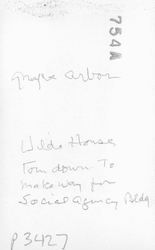 754A
Grape arbor
Wilde House
Torn down To
make way for
Social Agency Bldg
P3427